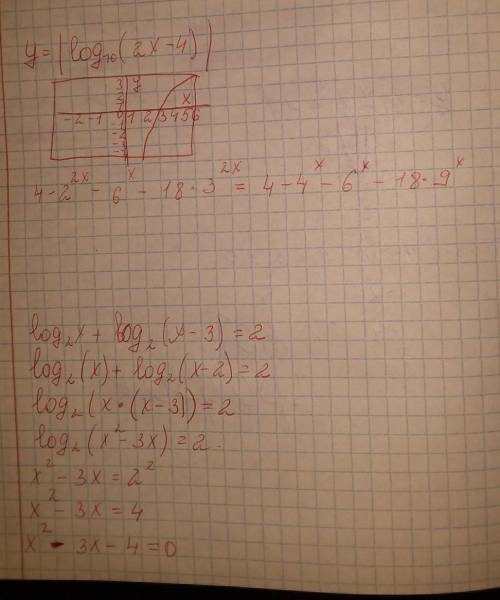 y = |log₁₀(2x-4)|
3 y
2 x
-2 -1 0 1 2 3 4 5 6
-1
-2
-3
4-2²ˣ - 6ˣ - 18·3²ˣ = 4-4ˣ - 6ˣ - 18·9ˣ
log₂x + log₂(x-3) = 2
log₂(x) + log₂(x-2) = 2
log₂(x·(x-3)) = 2
log₂(x²-3x) = 2.
x² - 3x = 2²
x² - 3x = 4
x² - 3x - 4 = 0